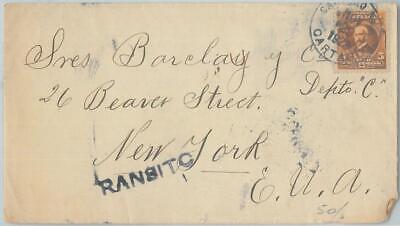 Sres Barclay y C
Depto. "C."
26 Beaver Street.
New York
E. U. A.
RANSITO
CART
5
50/-